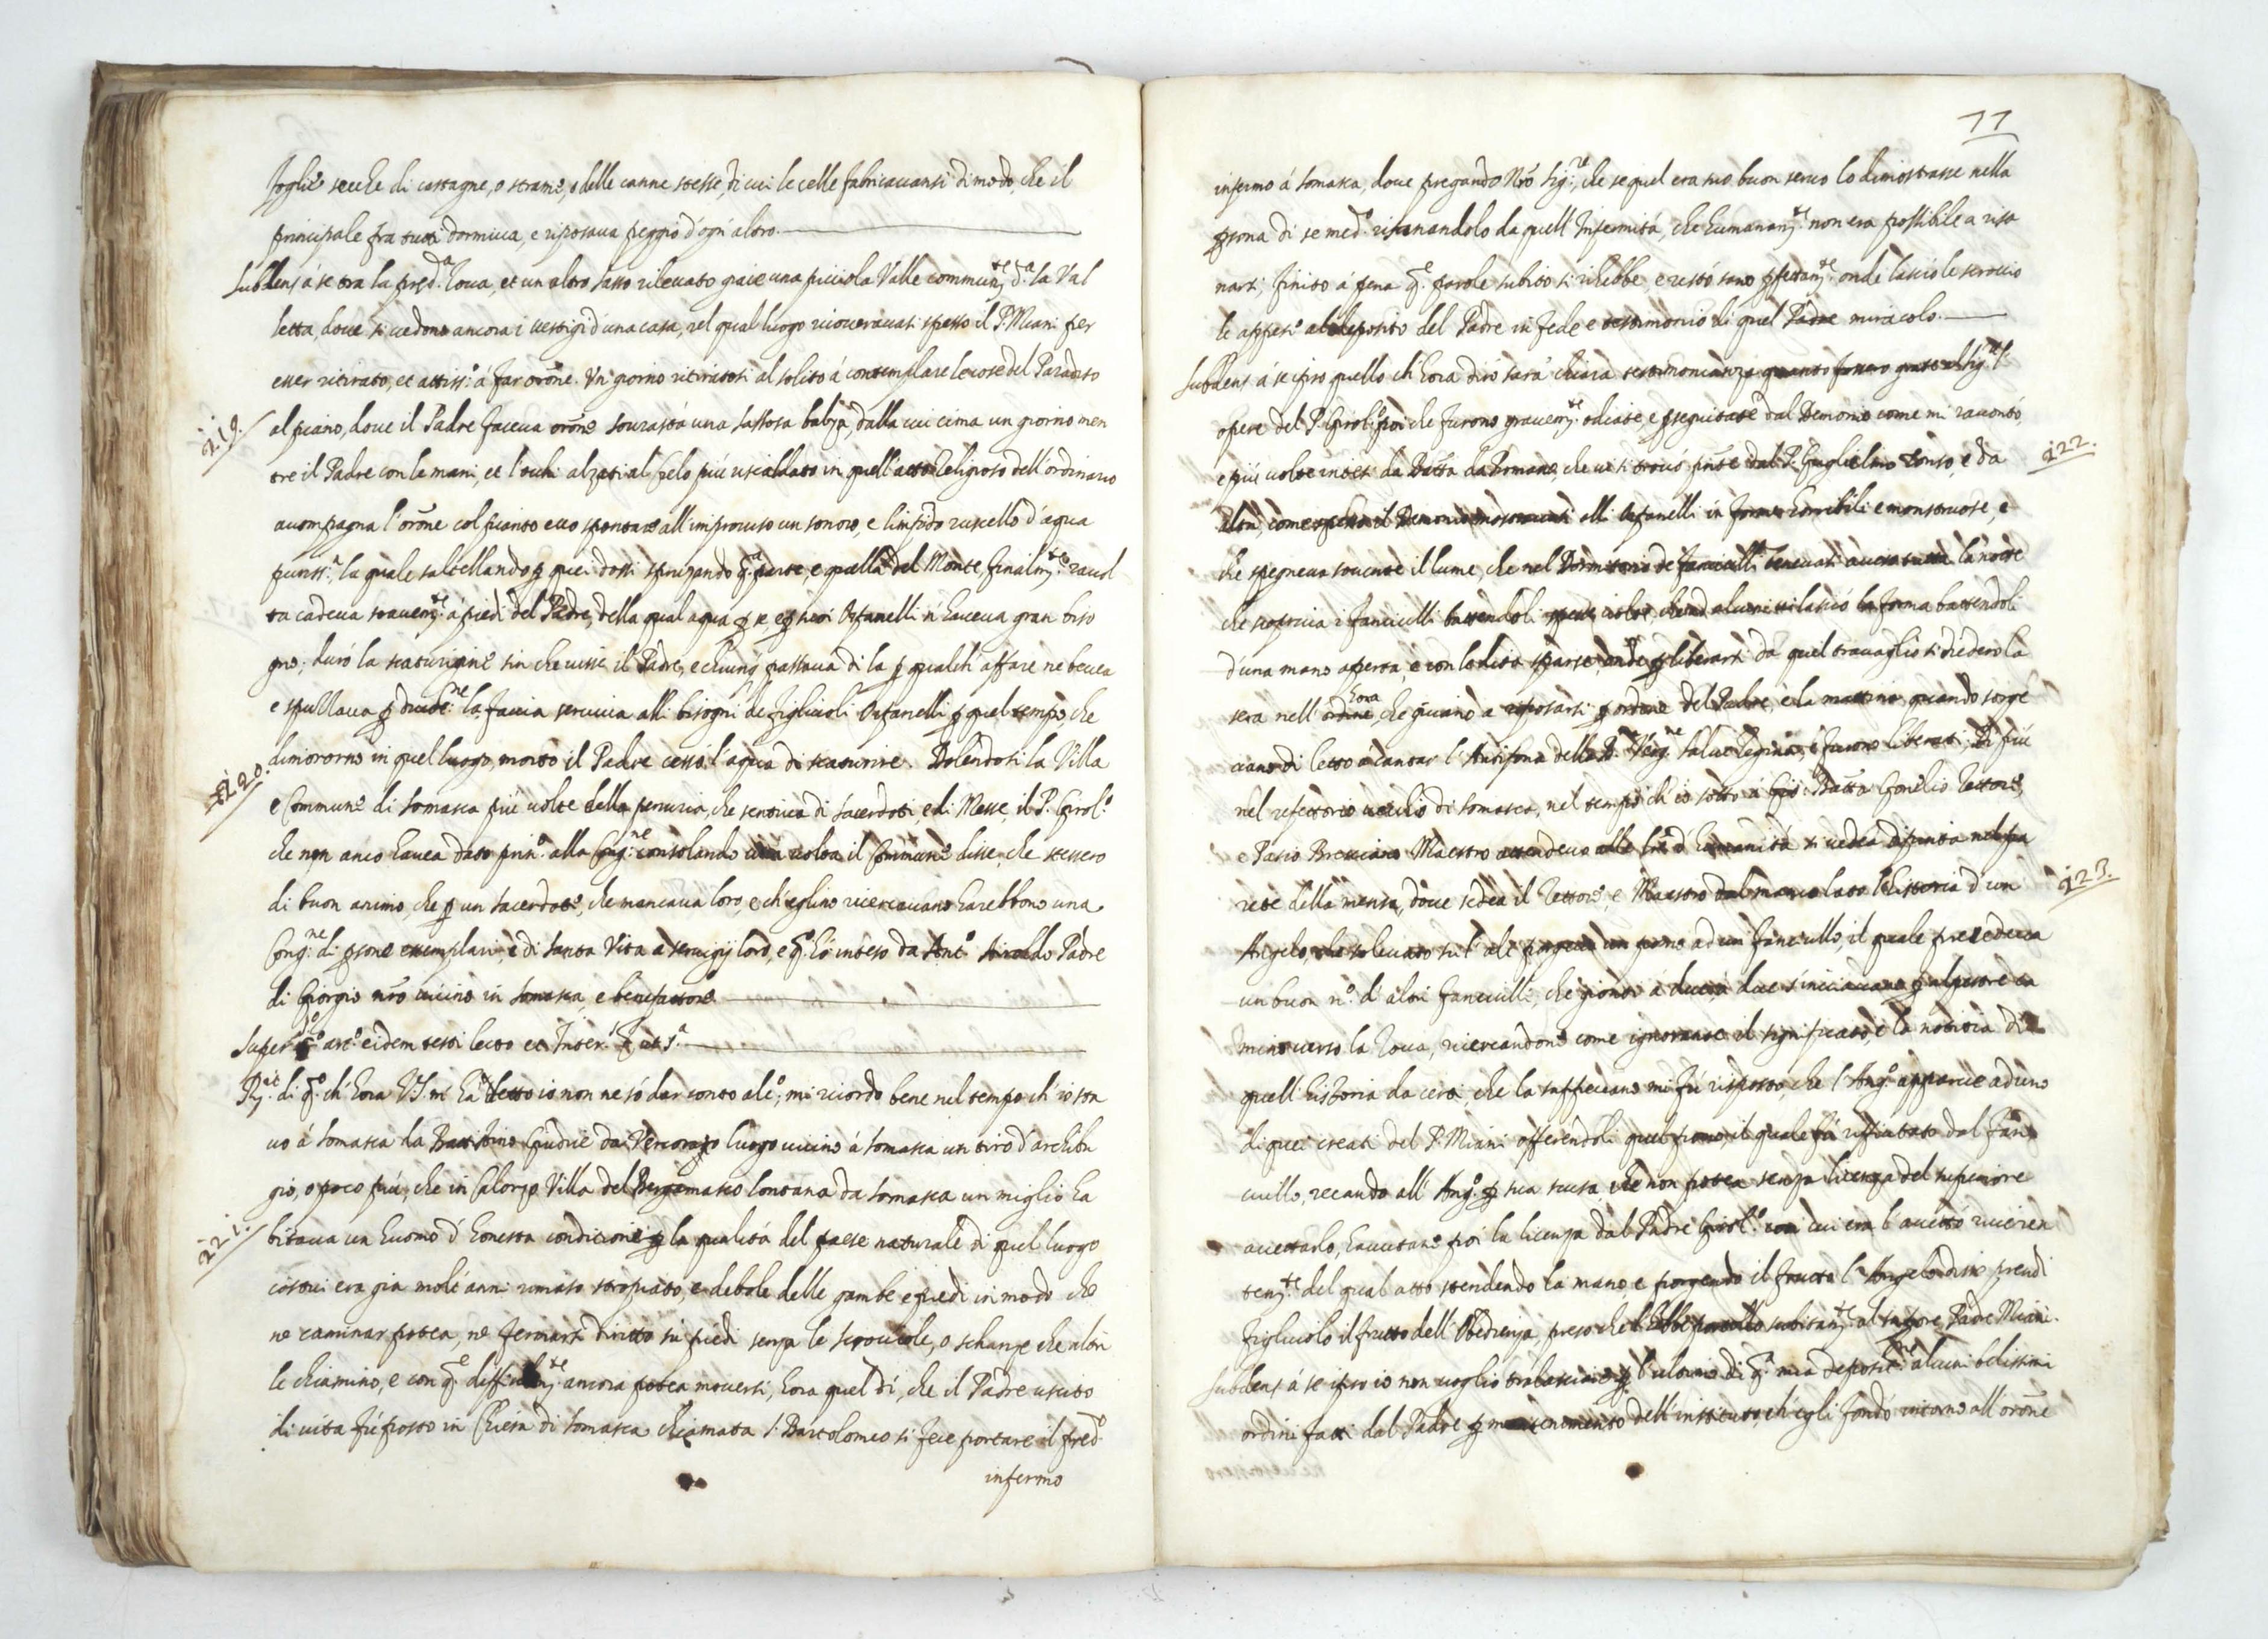 foglie secche di castagne, o strame, o delle canne stesse, di cui le celle fabricavansi di modo, che il
principale fra tutti dormiva, e riposava peggio d'ogn' altro.
Subdens à se tra la pred.a Roca, et un altro sasso rilevato giace una picciola Valle commun.te d.a la Val
letta, dove si vedono ancora i vestigi d'una casa, nel qual luogo ricoveravasi spesso il P. Miani per
esser ritirato, et attiss.o à far orõne. Un giorno ritiratosi al solito à contemplare le cose del Paradiso
219.
al piano, dove il Padre faceva orõne sourastà una sassosa balza, dalla cui cima un giorno men
tre il Padre con le mani, et l'ochi alzati al Cielo più riscaldato in quell'atto Religioso dell'ordinario
accompagna l'orõne col pianto ecco spontare all'improviso un sonoro, e limpido ruscello d'aqua
puriss.a, la quale saltellando p quei dossi spruzando q.a parte, e quella del Monte, finalm.te racol
ta cadeva soavem.te à piedi del Padre, della qual aqua p se e p suoi Orfanelli n'haveva gran biso
gno; durò la scaturigine sin che visse il Padre, e chiunq passava di la p qualch'affare ne bevea
e spullava p divot.ne la faccia serviva alli bisogni de figliuoli Orfanelli p quel tempo che
dimororno in quel luogo, morto il Padre cessò l'aqua di scaturire. Dolendosi la Villa
220.
e Commune di Somasca più volte della penuria, che sentiva di Sacerdoti, e di Messe, il P. Girol.o
che non anco havea dato prin.o alla Cong.ne consolando una volta il Commune disse, che stessero
di buon animo, che p un Sacerdote, che mancava loro, e ch'eglino ricercavano harebbono una
Cong.ne di psone essemplari, e di Santa Vita a servigij loro, e q.o hò inteso da Ant.o Airoldo Padre
di Giorgio nr̃o vicino in Somasca, e benefattore.
Super art.o eidem testi lecto et Inter.
R. di q.o ch'hora V.S. m'ha letto io non ne sò dar conto alc.o, mi ricordo bene nel tempo ch'io sta
vo à Somasca da Battistino Giudice da Vercorago luogo vicino à Somasca un tiro d'archibu
gio, o poco più, che in Calorzo Villa del Bergamasco lontana da Somasca un miglio ha
221.
bitava un huomo d'honesta condicione p la qualità del paese naturale di quel luogo
costui era già molt'anni rimaso stropiato, e debole delle gambe e piedi in modo che
ne caminar potea, ne fermarsi diritto in piedi senza le scrociole, o schanze che altri
le chiamino, e con q.e difficulm.te ancora potea moversi, hora quel dì, che il Padre uscito
di vita fù posto in Chiesa di Somasca chiamata S. Bartolomeo si fece portare il pred.o
infermo
77
infermo à Somasca, dove pregando Nr̃o Sig.re, che se quel era suo buon servo lo dimostrasse nella
psona di se med.o risanandolo da quell'Infermità, che humanam.te non era possibile a risa
narsi, finito à pena q.e parole subito si rihebbe, e restò sano pfettam.te onde lasciò le scrocio
le appese al deposito del Padre in fede e testimonio di quel miracolo.
Subdens à se ipso quello ch'hora dirò sarà chiara testimonianza quanto fossero grate al Sig.re l'
opere del P. Girol.o poi che furono gravem.te odiate e pseguitate dal Demonio come mi racontò,
222.
e più volte intesi da Batta da Romano, che vi si trovò pñte dal P. Guglielmo Tonso, e da
altri, come spesso il Demonio mostravasi alli Orfanelli in forme horribili e monstruose, e
che spegneva sovente il lume, che nel Dormitorio de fanciulli tenevasi acceso tutta la notte
che scopriva i fanciulli battendoli spesse volte, ad alcuni lasciò la forma battendoli
d'una mano aperta, e con le dita sparse, onde p liberarsi da quel travaglio si diedero la
sera nell'hora, che givano a riposarsi p ordine del Padre, e la mattina quando sorge
vano di letto à cantar l'Antifona della B. Verg.ne Salve Regina, e furono liberati. Di più
nel refettorio vecchio di Somasca, nel tempo ch'io sotto à Gio: Batta Gonelio Rettore,
223.
e Pasio Bresciano Maestro attendevo alle lr̃e d'humanità si vedea dipinta nella pa
rete della mensa, dove sedea il Rettore, e Maestro dal manco lato l'historia d'un
Angelo, che solevato su l'ale porgeva un pomo ad un fanciullo, il quale precedeva
un buon n.o d'altri fanciulli, che gionti à due à due s'inviavano p alpestre ca
mino verso la Roca, ricercandone come ignorante il significato, e la notitia di
quell'historia da certi, che la sappevano mi fù risposto, che l'Ang.o apparve ad uno
di quei creati del P. Miani offerendoli quel pomo, il quale fù riffiutato dal fan
ciullo, recando all'Ang.o p sua scusa, che non potea senza licenza del superiore
accettarlo, havutane poi la licenza dal Padre Girol.o con cui era l'accettò riveren
tem.te del qual atto stendendo la mano e porgendo il frutto l'Angelo disse prendi
figliuolo il frutto dell'Obedienza, preso che l'hebbe subitam.te al Padre Miani.
Subdens à se ipso io non voglio tralasciare p l'ultimo di q.a mia deposit.ne alcuni bellissimi
ordini fatti dal Padre p mantenimento dell'instituto, ch'egli fondò intorno all'orõne